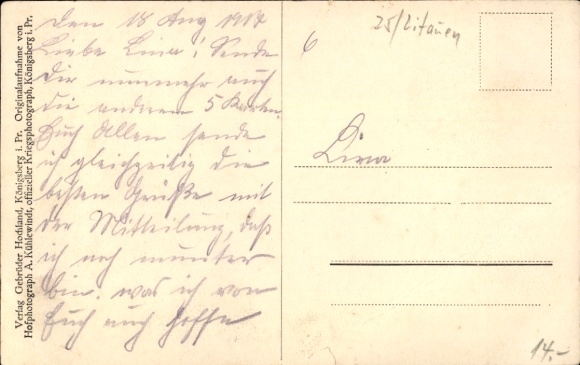 Den 18 Aug 1917
Liebe Lina! Sende
Dir nunmehr auch
die anderen 5 Karten.
Euch Allen sende
ich gleichzeitig die
besten Grüße mit
der Mitteilung, daß
ich noch munter
bin. was ich von
Euch auch hoffe
Verlag Gebrüder Hochland, Königsberg i. Pr. Originalaufnahme von
Hofphotograph A. Kühlewindt, offizieller Kriegsphotograph, Königsberg i. Pr.
6
25/Litauen
Lina
14.-